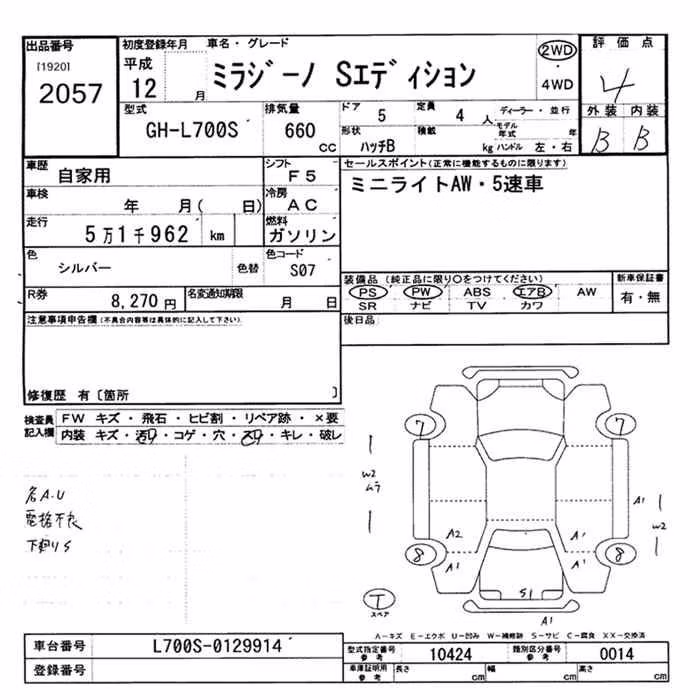 出品番号 初度登録年月 車名・グレード 評価点
[1920] 平成 2WD
2057 12 月 ミラジーノ Sエディション ・ 4
4WD
型式 排気量 ドア 5 定員 4 人 ディーラー・並行 外装 内装
GH-L700S 660 cc 形状 ハッチB 積載 kg モデル年式 年 B B
ハンドル 左・右
車歴 自家用 シフト F5 セールスポイント(正常に機能するものに限ります)
車検 年 月( 日) 冷房 AC ミニライトAW・5速車
走行 5万1千962 km 燃料 ガソリン
色 シルバー 色替 色コード S07
装備品(純正品に限り〇をつけてください) 新車保証書
R券 8,270円 名変通知期限 月 日 PS PW ABS エアB AW 有・無
SR ナビ TV カワ
注意事項申告欄(不具合内容等は具体的に記入して下さい) 後日品
修復歴 有〔箇所 〕
検査員記入欄 FW キズ・飛石・ヒビ割・リペア跡・×要
内装 キズ・汚れ・コゲ・穴・スレ・キレ・破レ
7 7
W2
ムラ
各A.U A1
電格不良 W2
下廻りS A2 A1
8 A1 A1 8
T S1
スペア A1
A-キズ E-エクボ U-凹み W-補修跡 S-サビ C-腐食 XX-交換済
車台番号 L700S-0129914 型式指定番号 参考 10424 類別区分番号 参考 0014
登録番号 車庫証明用 参考 長さ cm 幅 cm 高さ cm